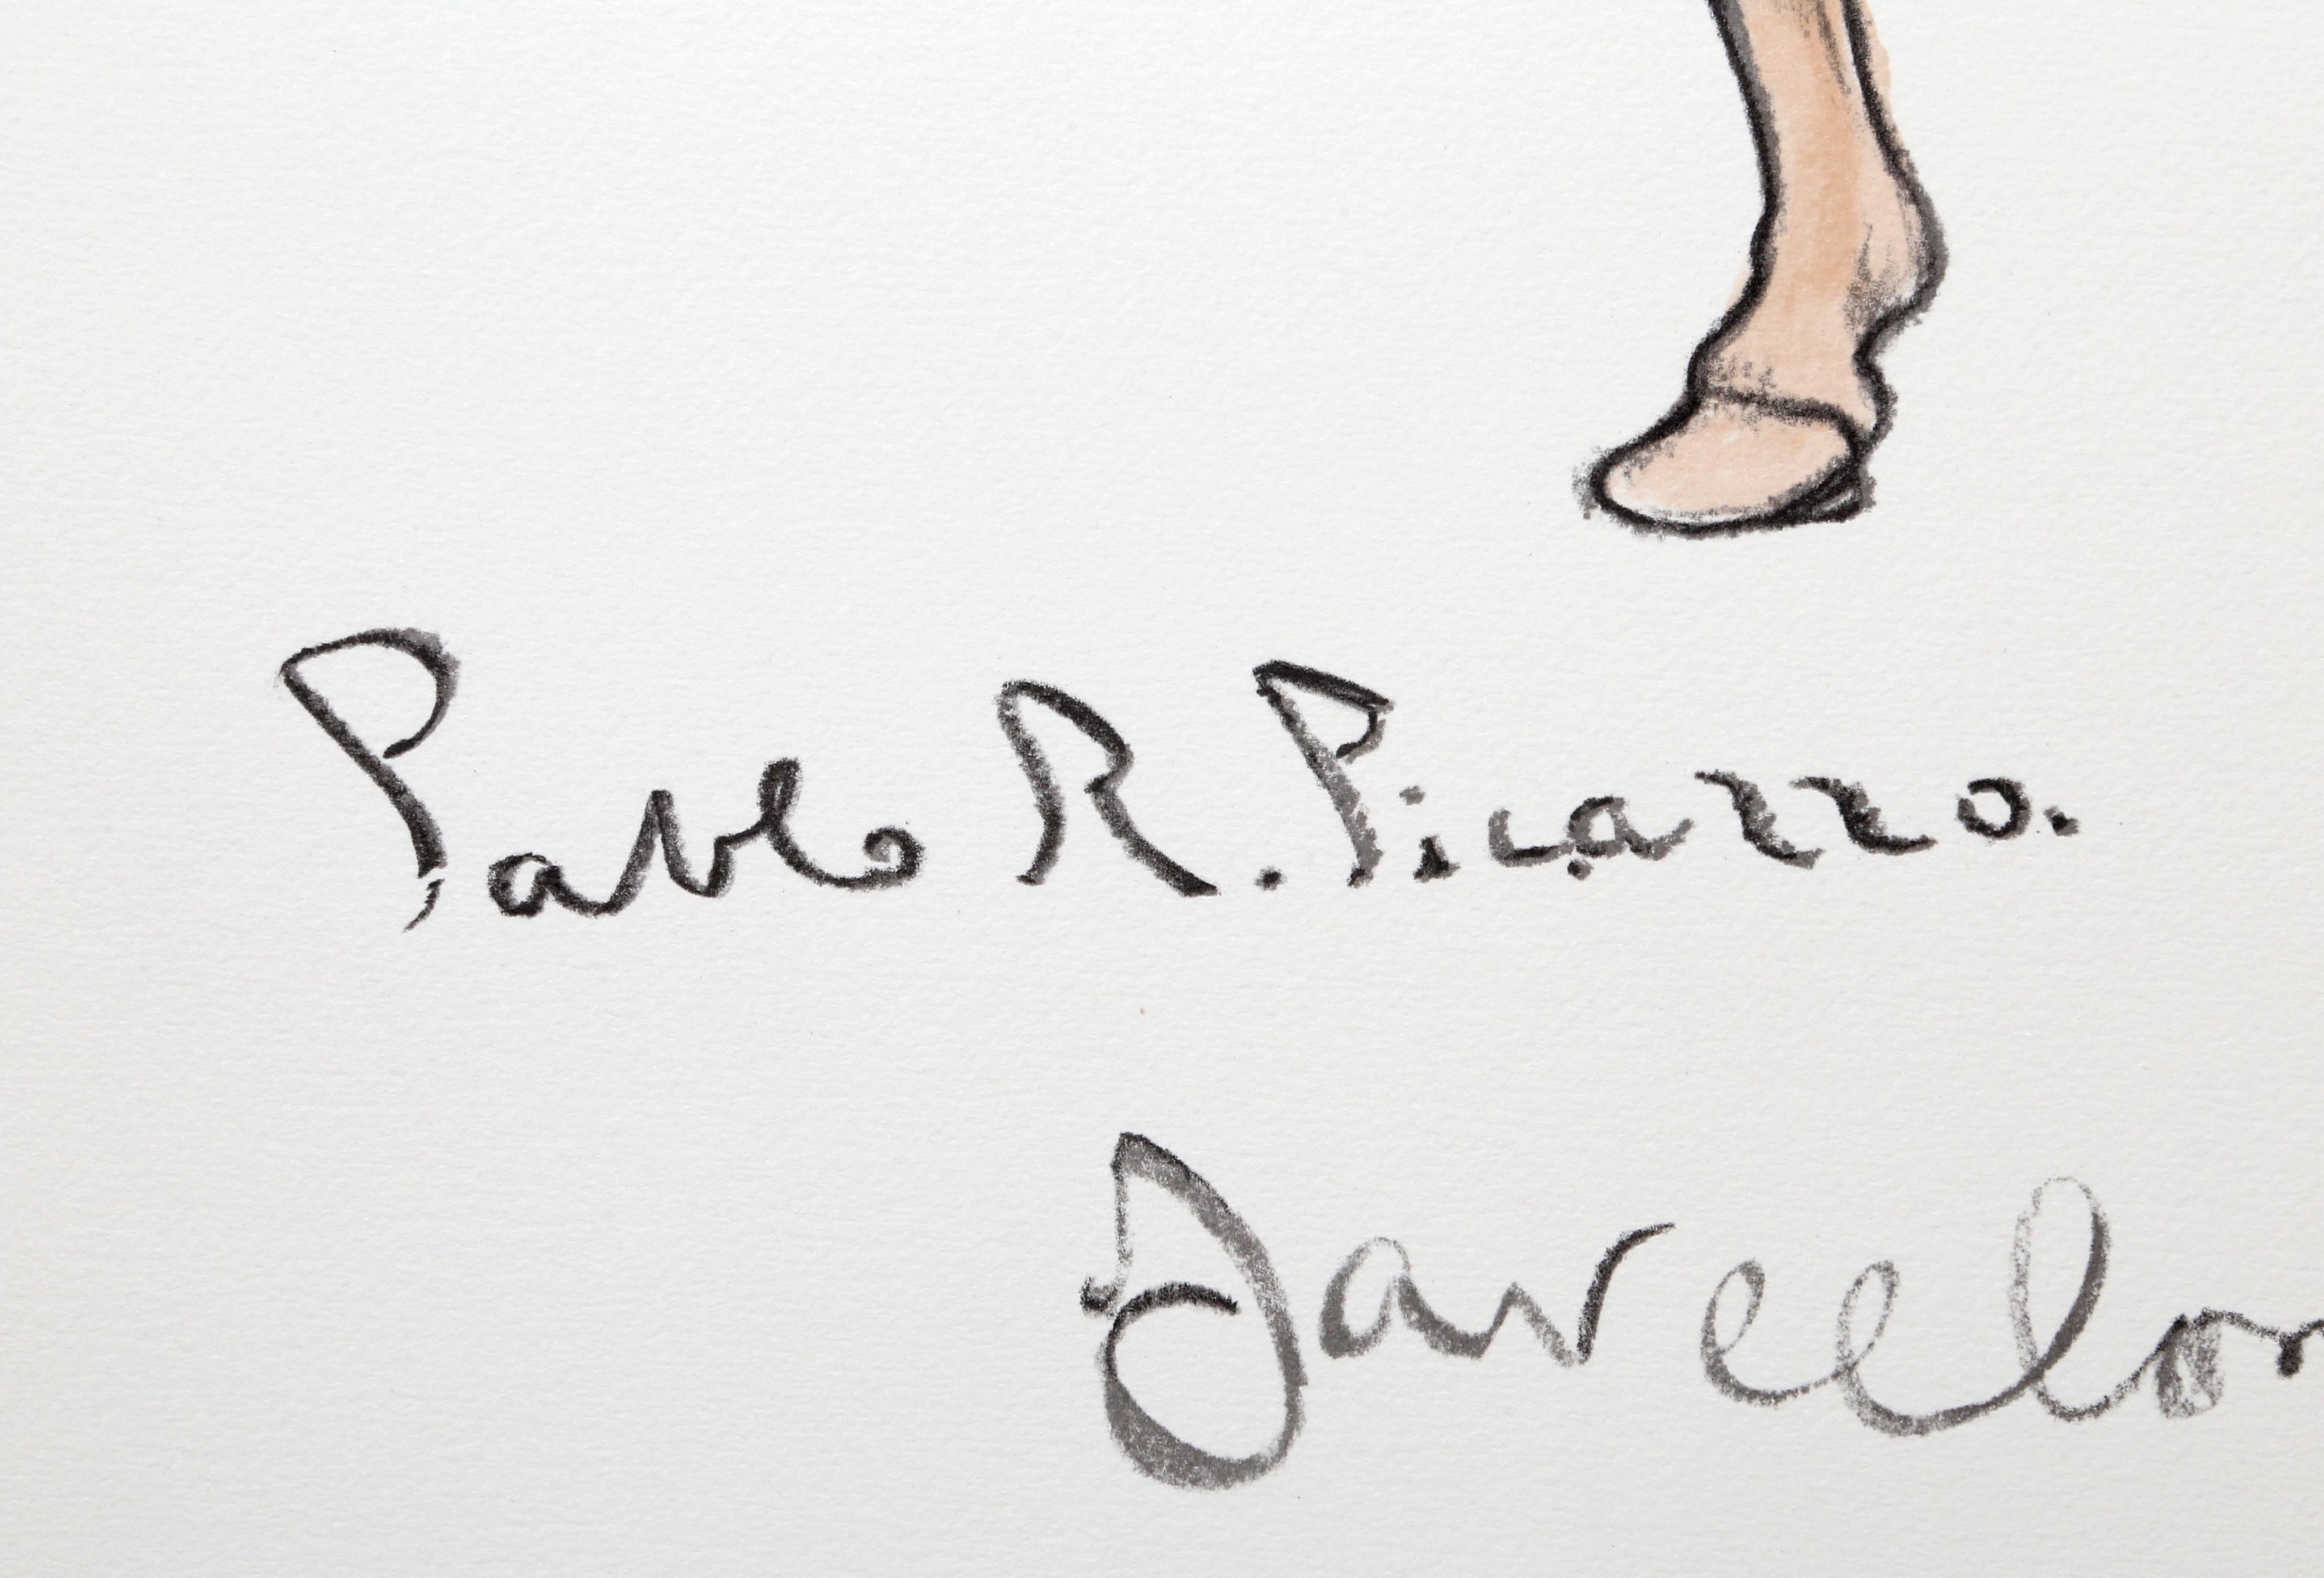 Pablo R. Picazzo.
Barcelon